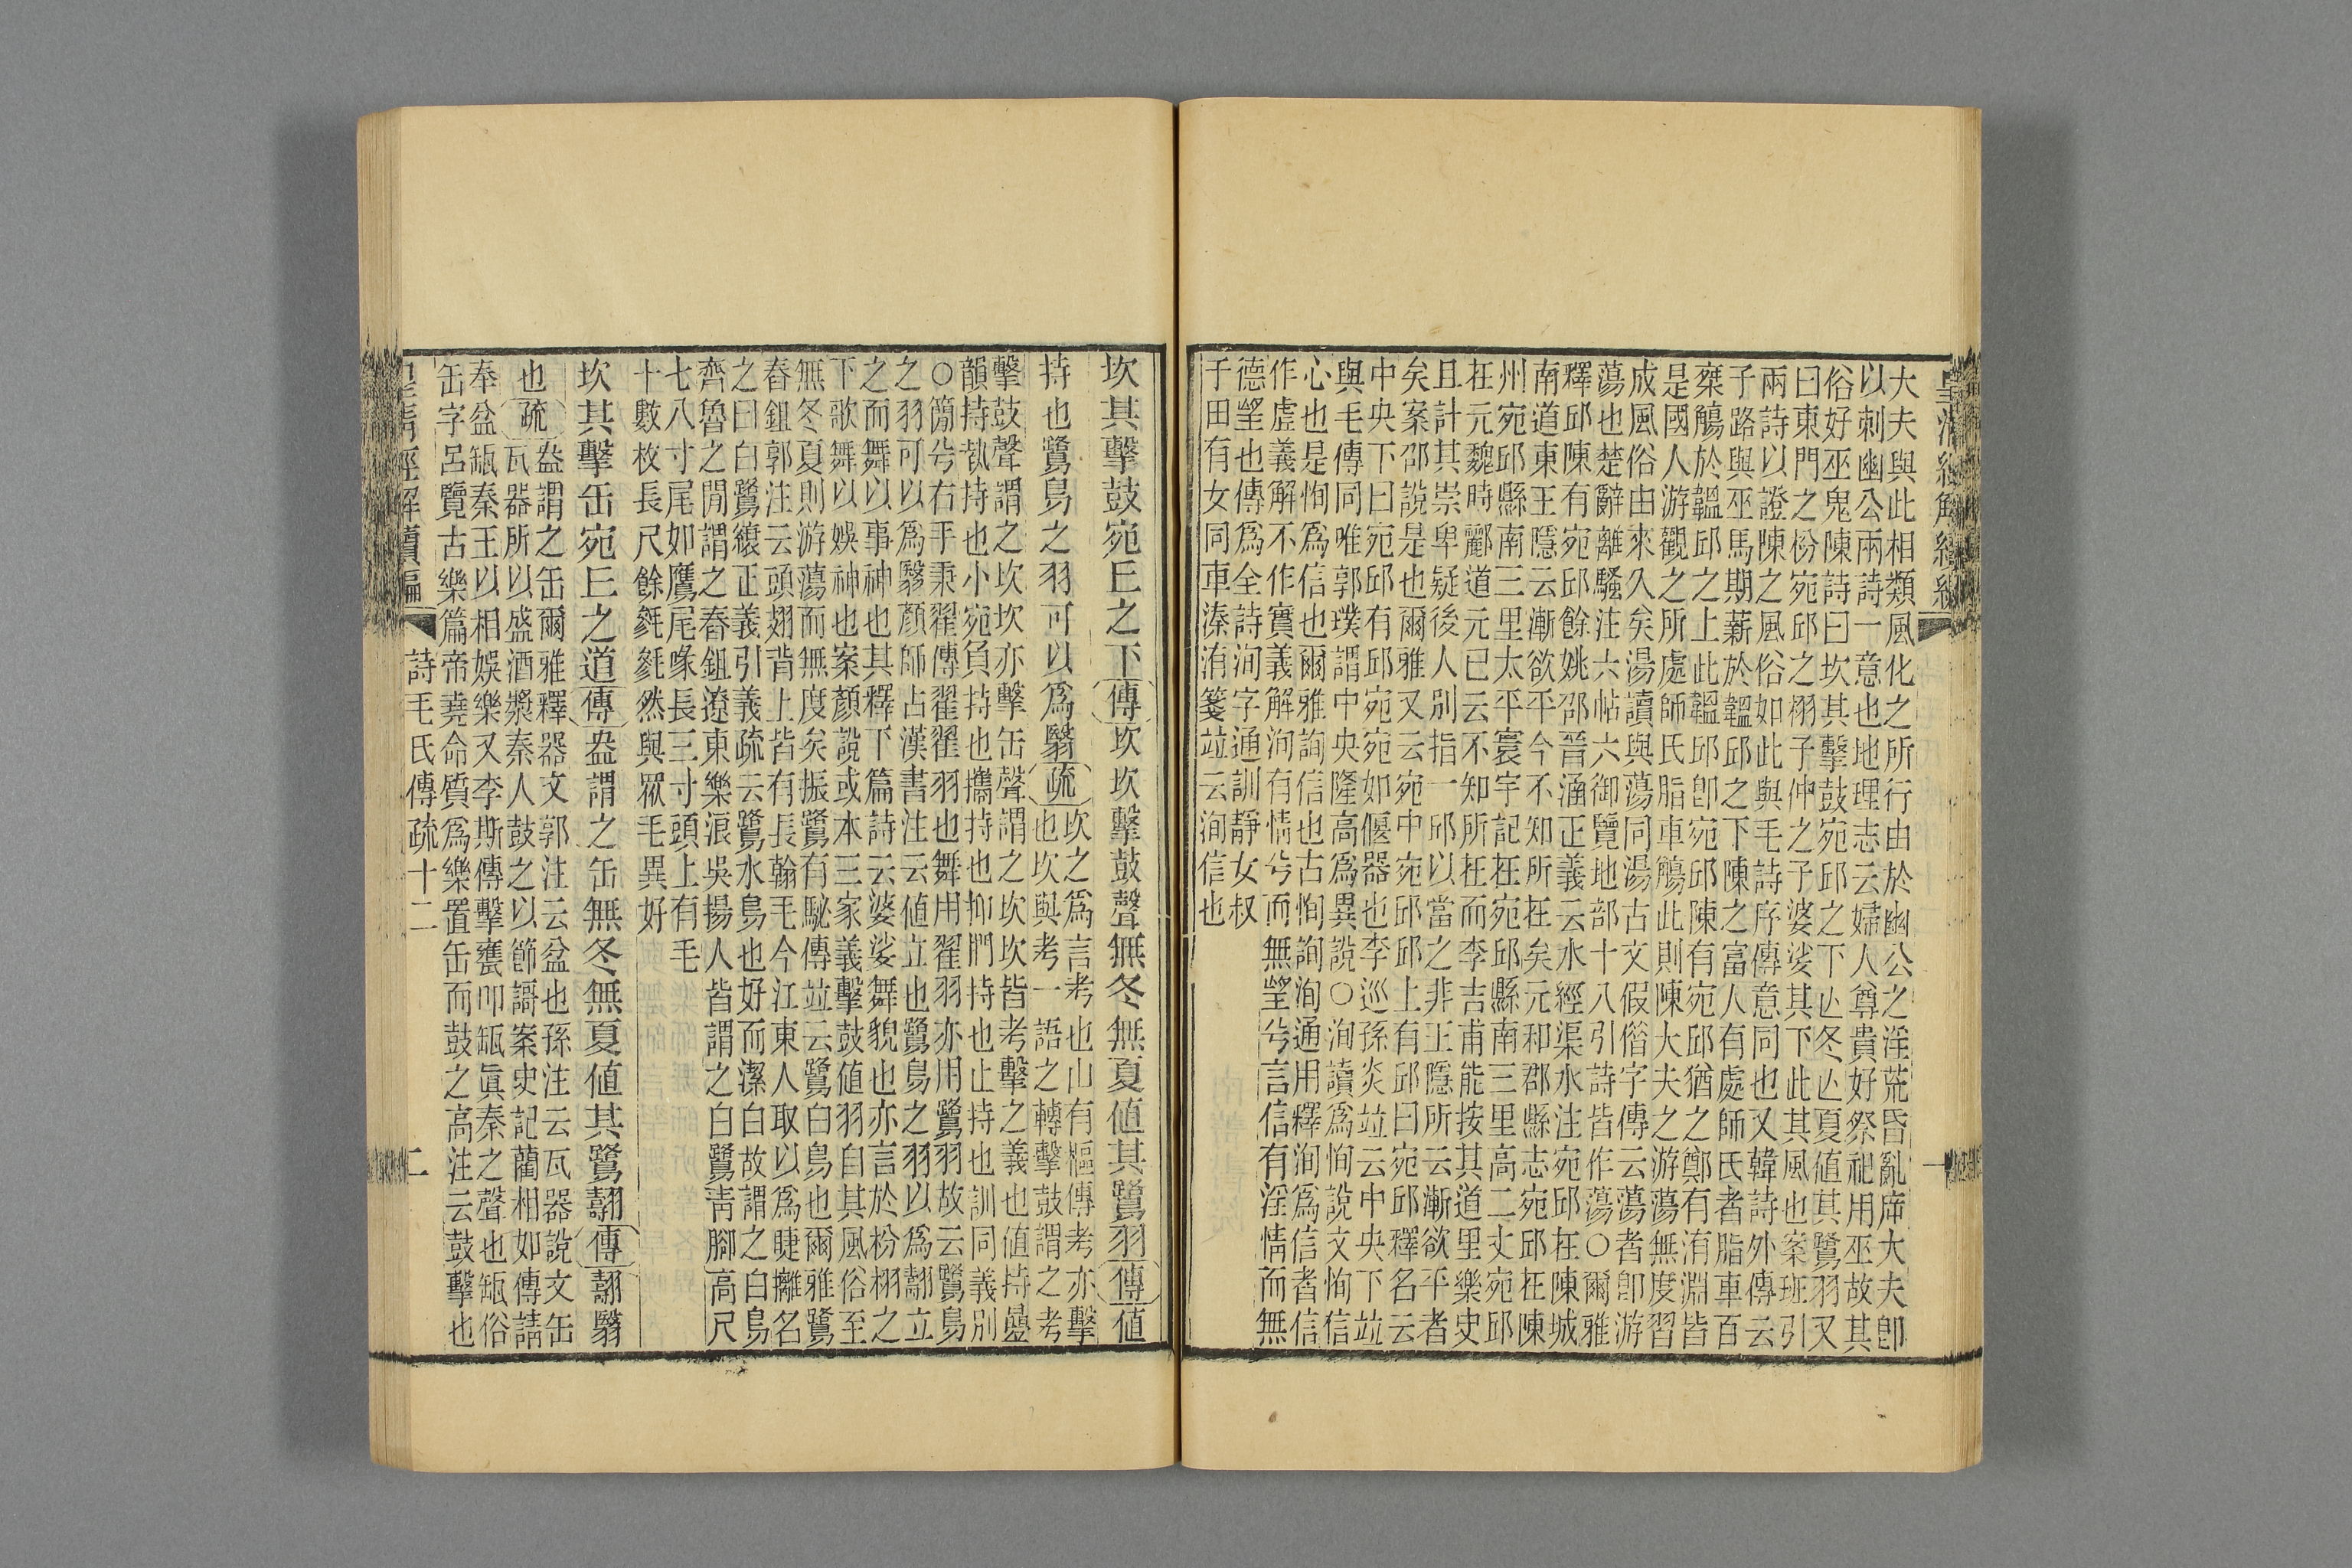 大夫與此相類風化之所行由於幽公之淫荒昏亂席大夫卽
以刺幽公兩詩一意也地理志云婦人尊貴好祭祀用巫故其
俗好巫鬼陳詩曰坎其擊鼓宛邱之下亾冬亾夏値其鷺羽又
曰東門之枌宛邱之栩子仲之子婆娑其下此其風也案班引
兩詩以證陳之風俗如此與毛詩序傳意同也又韓詩外傳云
子路與巫馬期薪於韞邱之下陳之富人有處師氏者脂車百
椉觴於韞邱之上此韞邱卽宛邱陳有宛邱猶之鄭有洧淵皆
是國人游觀之所處師氏脂車觴此則陳大夫之游蕩無度習
成風俗由來久矣湯讀與蕩同湯古文假偺字傳云蕩者卽游
蕩也楚辭離騷注六帖六御覽地部十八引詩皆作蕩○爾雅
釋邱陳有宛邱餘姚邵晉涵正義云水經渠水注宛邱在陳城
南道東王隱云漸欲平今不知所在矣元和郡縣志宛邱在陳
州宛邱縣南三里太平寰宇記在宛邱縣南三里高二丈宛邱
在元魏時酈道元已云不知所在而李吉甫能按其道里樂史
且計其崇卑疑後人別指一邱以當之非王隱所云漸欲平者
矣案邵說是也爾雅又云宛中宛邱邱上有邱曰宛邱釋名云
中央下曰宛邱有邱宛宛如偃器也李巡孫炎竝云中央下竝
與毛傳同唯郭璞謂中央隆高爲異說○洵讀爲恂說文恂信
心也是恂爲信也爾雅詢信也古恂詢洵通用釋洵爲信者信
作虛義解不作實義解洵有情兮而無朢兮言信有淫情而無
德朢也傳爲全詩洵字通訓靜女叔
于田有女同車溱洧箋竝云洵信也
坎其擊鼓宛丘之下傳坎坎擊鼓聲無冬無夏値其鷺羽傳値
持也鷺鳥之羽可以爲翳疏坎之爲言考也山有樞傳考亦擊
也坎與考一語之轉擊鼓謂之考
擊鼓聲謂之坎坎亦擊缶聲謂之坎坎皆考擊之義也値持疊
韻持執持也小宛負持也攜持也抑捫持也止持也訓同義別
○簡兮右手秉翟傳翟翟羽也舞用翟羽亦用鷺羽故云鷺鳥
之羽可以爲翳顏師古漢書注云値立也鷺鳥之羽以爲翿立
之而舞以事神也其釋下篇詩云婆娑舞貌也亦言於枌栩之
下歌舞以娛神也案顏說或本三家義擊鼓値羽自其風俗至
無冬夏則游蕩而無度矣振鷺有駜傳竝云鷺白鳥也爾雅鷺
舂鉏郭注云頭翅背上皆有長翰毛今江東人取以爲睫攡名
之曰白鷺縗正義引義疏云鷺水鳥也好而潔白故謂之白鳥
齊魯之閒謂之舂鉏遼東樂浪吳揚人皆謂之白鷺靑腳高尺
七八寸尾如鷹尾喙長三寸頭上有毛
十數枚長尺餘毿毿然與眾毛異好
坎其擊缶宛丘之道傳盎謂之缶無冬無夏値其鷺翿傳翿翳
也疏盎謂之缶爾雅釋器文郭注云盆也孫注云瓦器說文缶
瓦器所以盛酒漿秦人鼓之以節謌案史記藺相如傳請
奉盆缻秦王以相娛樂又李斯傳擊甕叩缻眞秦之聲也缻俗
缶字呂覽古樂篇帝堯命質爲樂置缶而鼓之高注云鼓擊也
詩毛氏傳疏十二
二